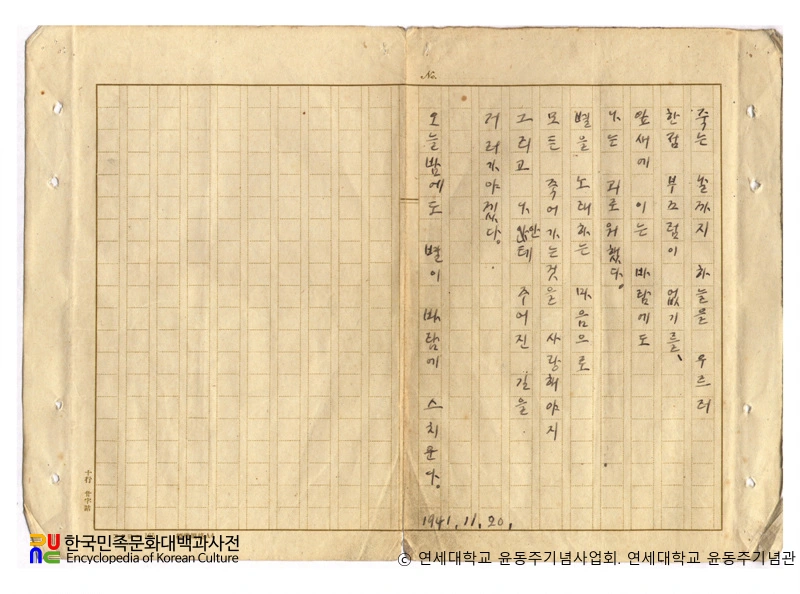 No.
죽는 날까지 하늘을 우르러
한점 부끄럼이 없기를、
잎새에 이는 바람에도
나는 괴로워했다。
별을 노래하는 마음으로
모든 죽어가는것을 사랑해야지
그리고 나안테 주어진 길을
거러가야겠다。
오늘밤에도 별이 바람에 스치운다。
1941.11.20.
十行 廿字詰
한국민족문화대백과사전
Encyclopedia of Korean Culture
ⓒ 연세대학교 윤동주기념사업회. 연세대학교 윤동주기념관